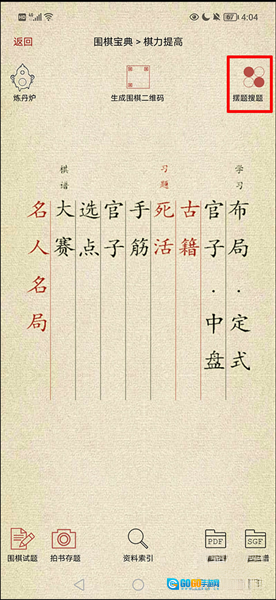 4:04
67
返回
围棋宝典 > 棋力提高
炼丹炉
生成围棋二维码
摆题搜题
学习
布局·定式
官子·中盘
习题
古籍
死活
手筋
官子
选点
棋谱
大赛
名人名局
围棋试题
拍书存题
资料索引
PDF
SGF